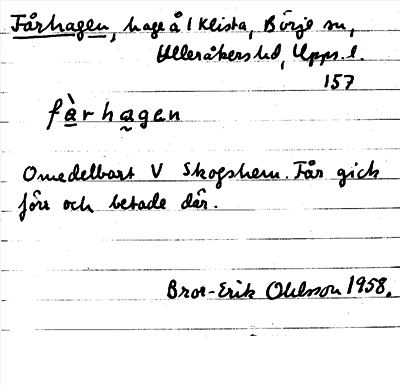 Fårhagen, hage å 1 Klista, Börje sn,
Ulleråkers hd, Upps. l.
157
fà̱rha̰gen
Omedelbart V Skogshem. Får gick
förr och betade där.
Bror-Erik Ohlsson 1958.